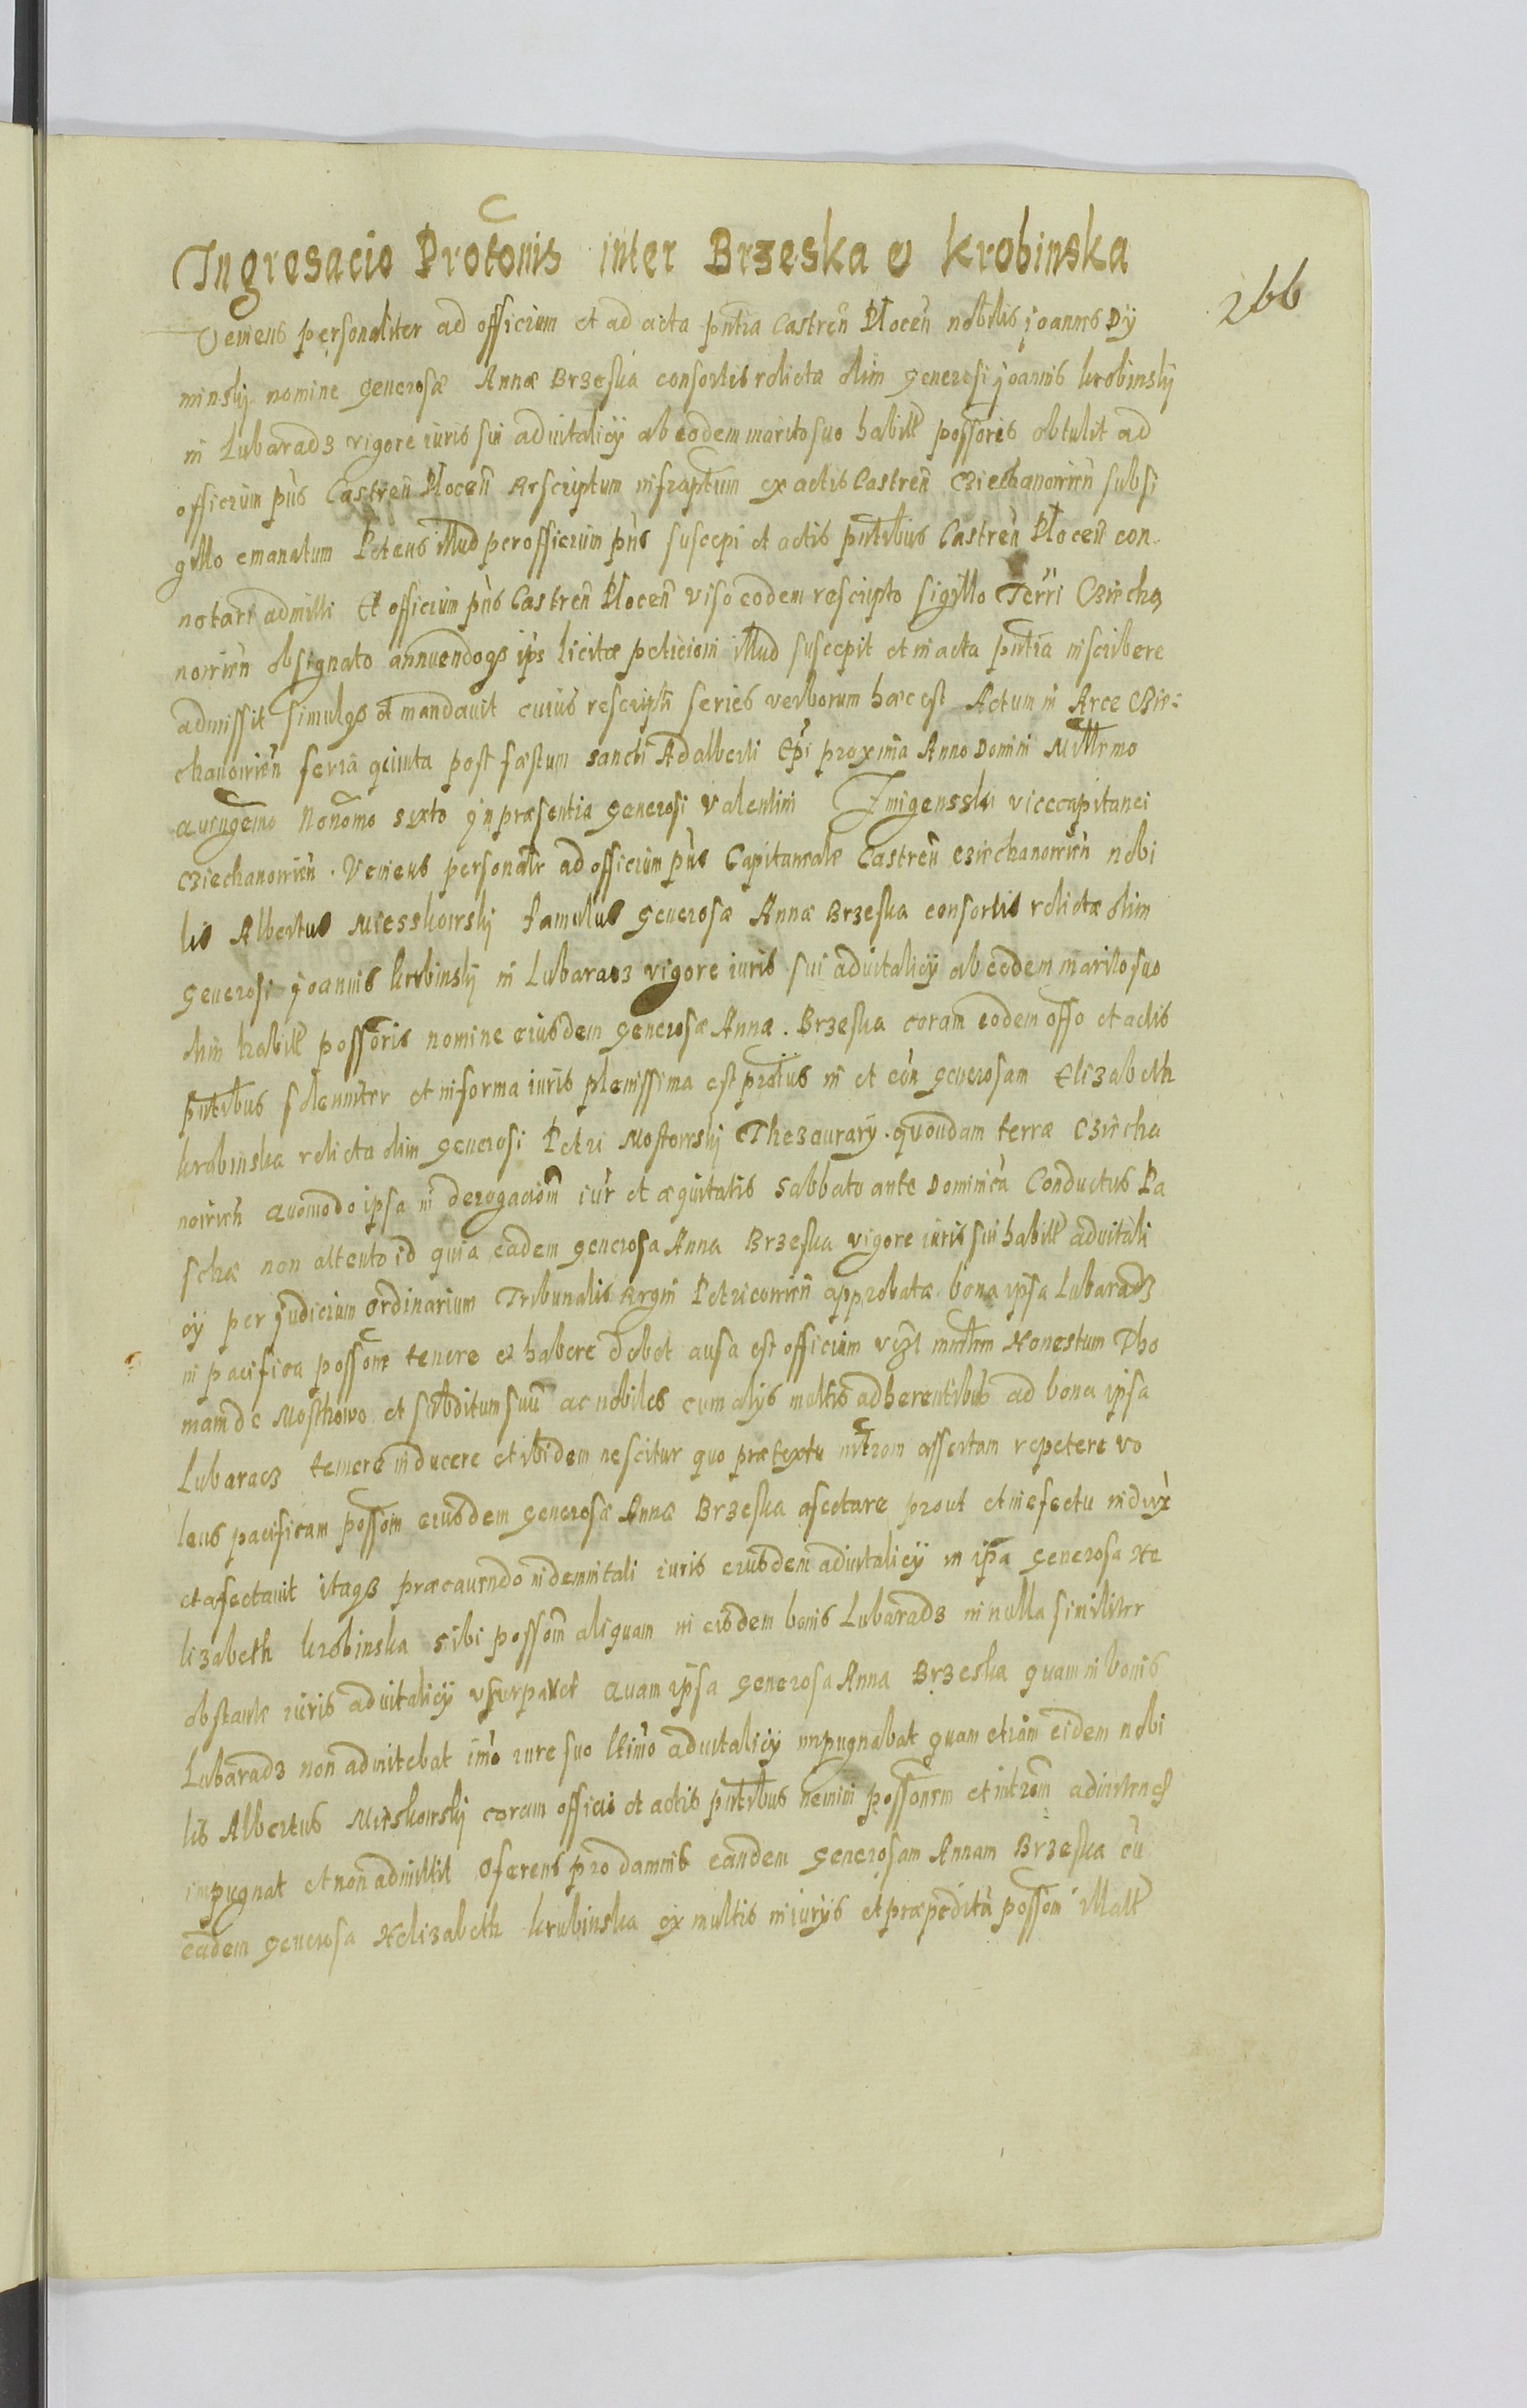 Ingresacio Protonis inter Brzeska e Krobinska
266
Veniens personaliter ad officium et ad acta pntia Castren Plocen nobilis joannes Dij
minskij nomine generosæ Annæ Brzeska consortis relictæ olim generosi joannis krobinskij
in Lubaradz vigore iuris sui aduitalicij ab eodem marito suo habitt possoris obtulit ad
officium pns Castren Plocen Rescriptum infraptum ex actis Castren Cziechanowien subsi
gillo emanatum Petens illud per officium pns suscepi et actis pntibus Castren Plocen con
notari admitti Et officium pns Castren Plocen viso eodem rescripto sigillo Terri Cziecha
nowien obsignato annuendoqz ips licitæ peticioni illud suscepit et in acta pntia inscribere
admissit simulqz et mandauit cuius rescripti series verborum hæc est Actum in Arce Czie:
chanowien feria quinta post fæstum sancti Adalberti Epi proxima Anno Domini Millemo
quingemo Nonomo sexto in præsentia generosi Valentini vicecapitanei
Cziechanowien. Veniens personalr ad officium pns Capitaneale Castren Cziechanowien nobi
lis Albertus Miesskowskij famulus generosæ Annæ Brzeska consortis relictæ olim
generosi joannis krobinskij in Lubaradz vigore iuris sui aduitalicij ab eodem marito suo
olim habitt possoris nomine eiusdem generosæ Annæ. Brzeska coram eodem offo et actis
pntibus solenniter et in forma iuris plenissima est protus in et con generosam Elizabeth
krobinska relicta olim generosi Petri Mostowskij Thezaurarij quondam terræ Cziecha
nowien Quomodo ipsa in derogaciom iur et æquitatis Sabbato ante Dominica Conductus Pa
schæ non attento id quia eadem generosa Anna Brzeska vigore iuris sui habitt aduitali
cij per judicium Ordinarium Tribunalis Regni Petricowien approbatæ bona ipsa Lubaradz
in pacifica possone tenere et habere debet ausa est officium Honestum Tho
mam de Mosthowo et subditum suu ac nobiles cum alijs multis adherentibus ad bona ipsa
Lubaradz temere inducere et ibidem nescitur quo prætextu introm assertam repetere vo
lens pacificam possom eiusdem generosæ Annæ Brzeska afectare prout et in efectu induxit
et afectauit itaqz præcauendo indemnitati iuris eiusdem aduitalicij in ipa generosa He
lizabeth krobinska sibi possom aliquam in eisdem bonis Lubaradz in nulla similiter
obstante iuris aduitalicij vsurparet Quam ipsa generosa Anna Brzeska quam in bonis
Lubaradz non admitebat imo iure suo ltimo aduitalicij impugnabat quam etiam eidem nobi
lis Albertus Mieskowskij coram officio et actis pntibus nemini possonem et introm
impugnat et non admittit Oferens pro damnis eandem generosam Annam Brzeska cu
eadem generosa Helizabeth krubinska ex multis iniurijs et præpedita possom illatt